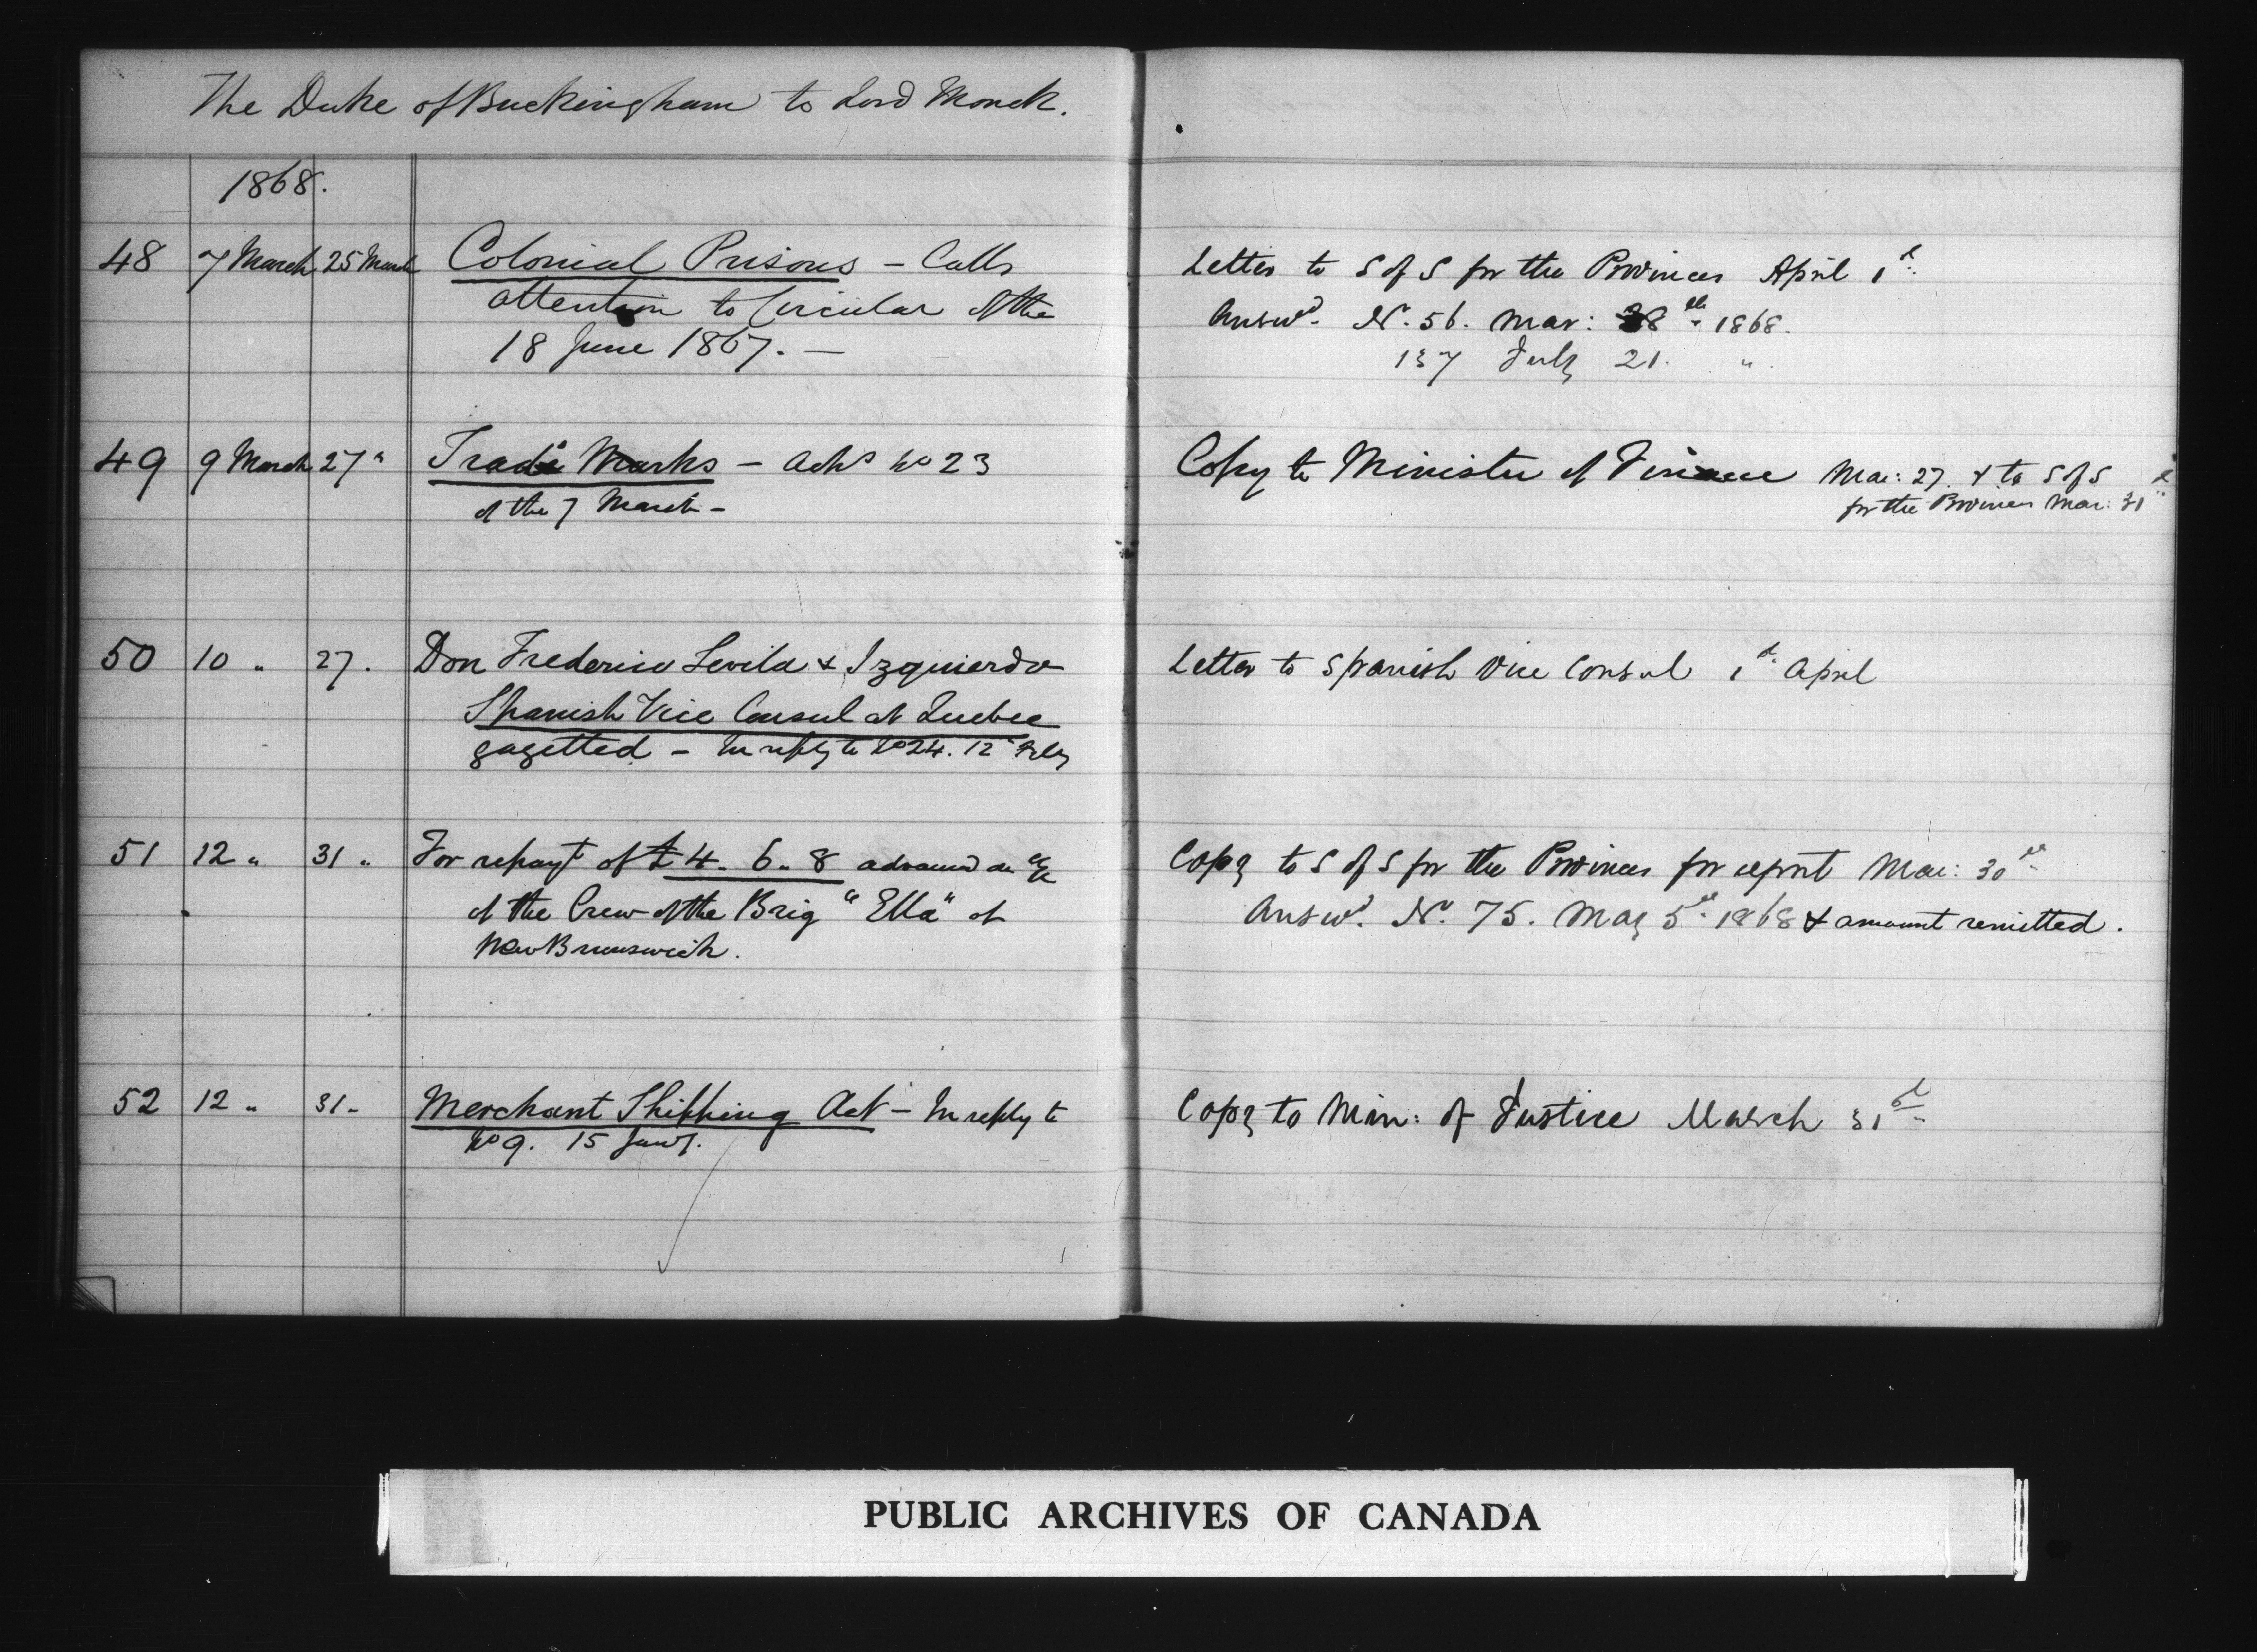 The Duke of Buckingham to Lord Monck.
1868.
48 7 March 25 March Colonial Prisons – Calls
attention to Circular of the
18 June 1867. –
Letter to S of S for the Provinces April 1st
Answd. No. 56. Mar: 28th 1868.
137 July 21. "
49 9 March 27 " Trade Marks – Acks No 23
of the 7 March –
Copy to Minister of Finance Mar: 27. & to S of S
for the Provinces Mar: 31st
50 10 " 27. Don Frederico Sevila & Izquierdo
Spanish Vice Consul at Quebec
gazetted – In reply to No 24. 12 Feby
Letter to Spanish Vice Consul 1st April
51 12 " 31 " For repayt of £4. 6. 8 advanced on a/c
of the Crew of the Brig "Ella" of
New Brunswick.
Copy to S of S for the Provinces for report Mar: 30th
Answd. No. 75. May 5th 1868 & amount remitted.
52 12 " 31 – Merchant Shipping Act – In reply to
No 9. 15 Jany.
Copy to Min: of Justice March 31st
PUBLIC ARCHIVES OF CANADA